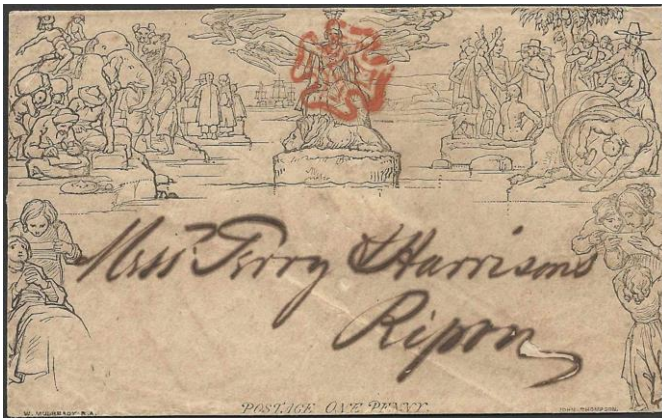 Messrs. Terry & Harrisons
Ripon
W. MULREADY. R.A.
POSTAGE ONE PENNY.
JOHN THOMPSON